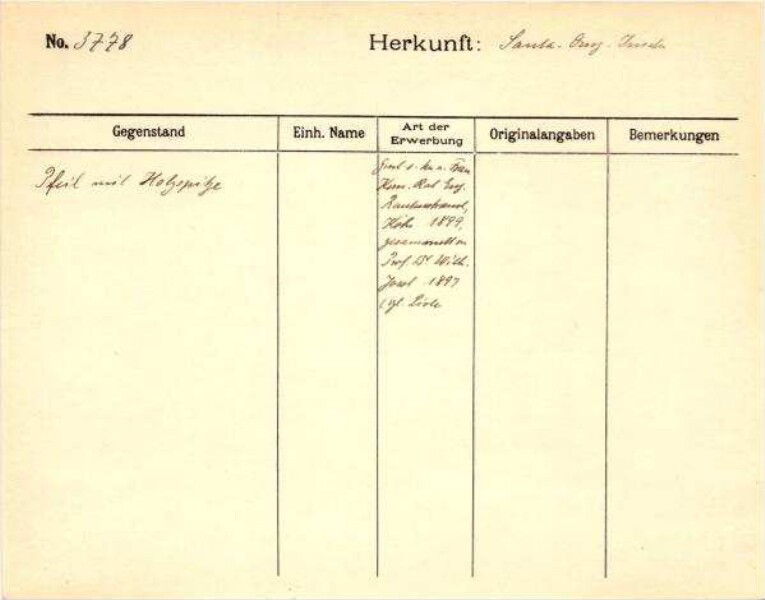 No. 3778
Herkunft: Santa-Cruz-Inseln
Gegenstand
Einh. Name
Art der
Erwerbung
Originalangaben
Bemerkungen
Pfeil mit Holzspitze
Frau
Kom. Rat Eug.
Rautenstrauch,
Köln 1899,
gesammelt von
Prof. Dr. Wilh.
Joest 1897